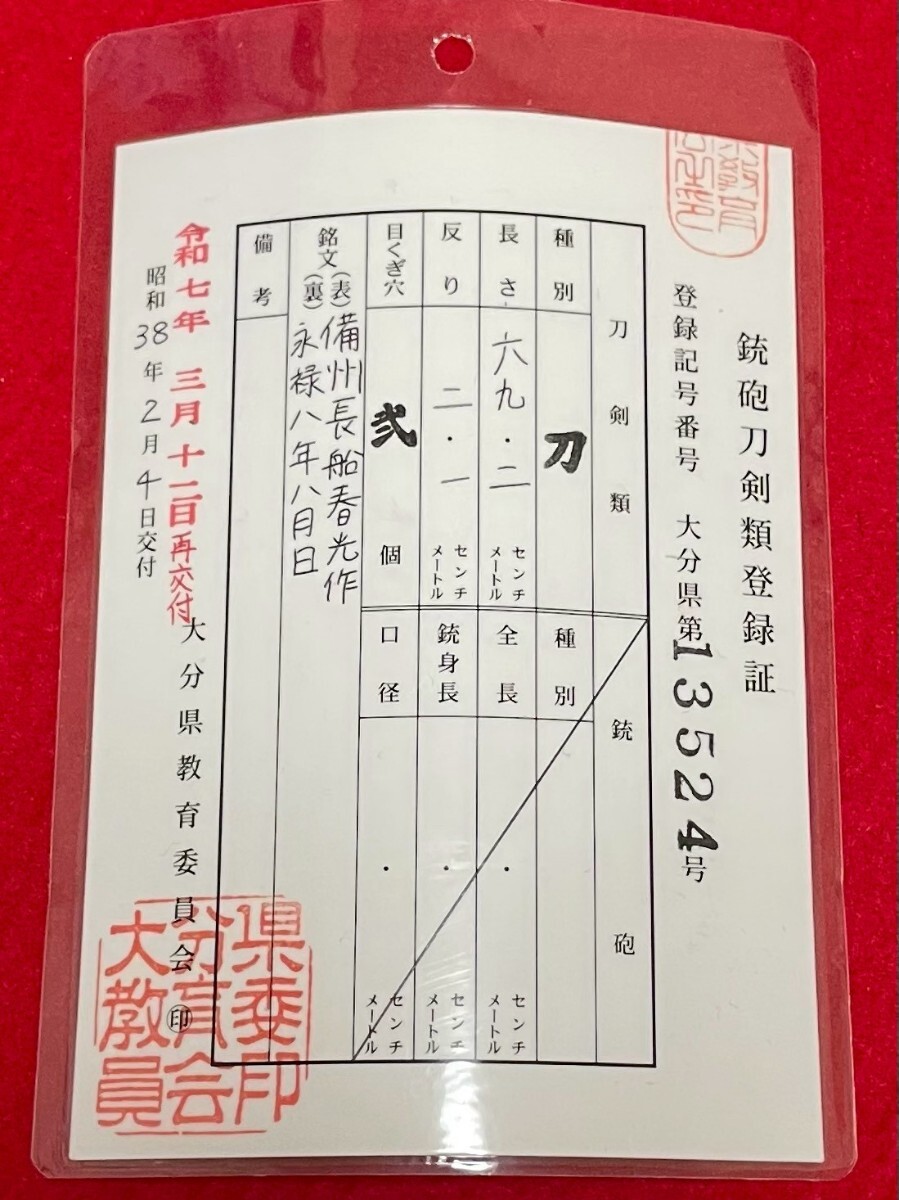 銃砲刀剣類登録証
登録記号番号 大分県第13524号
刀剣類
種別 刀
長さ 六九・二 センチメートル
反り 二・一 センチメートル
目くぎ穴 弐 個
銘文 (表) 備州長船春光作
(裏) 永禄八年八月日
備考
銃砲
種別
全長 ・ センチメートル
銃身長 ・ センチメートル
口径 ・ センチメートル
令和七年 三月十二日再交付
昭和38年2月4日交付
大分県教育委員会 ㊞
大分県
教育委
員会印